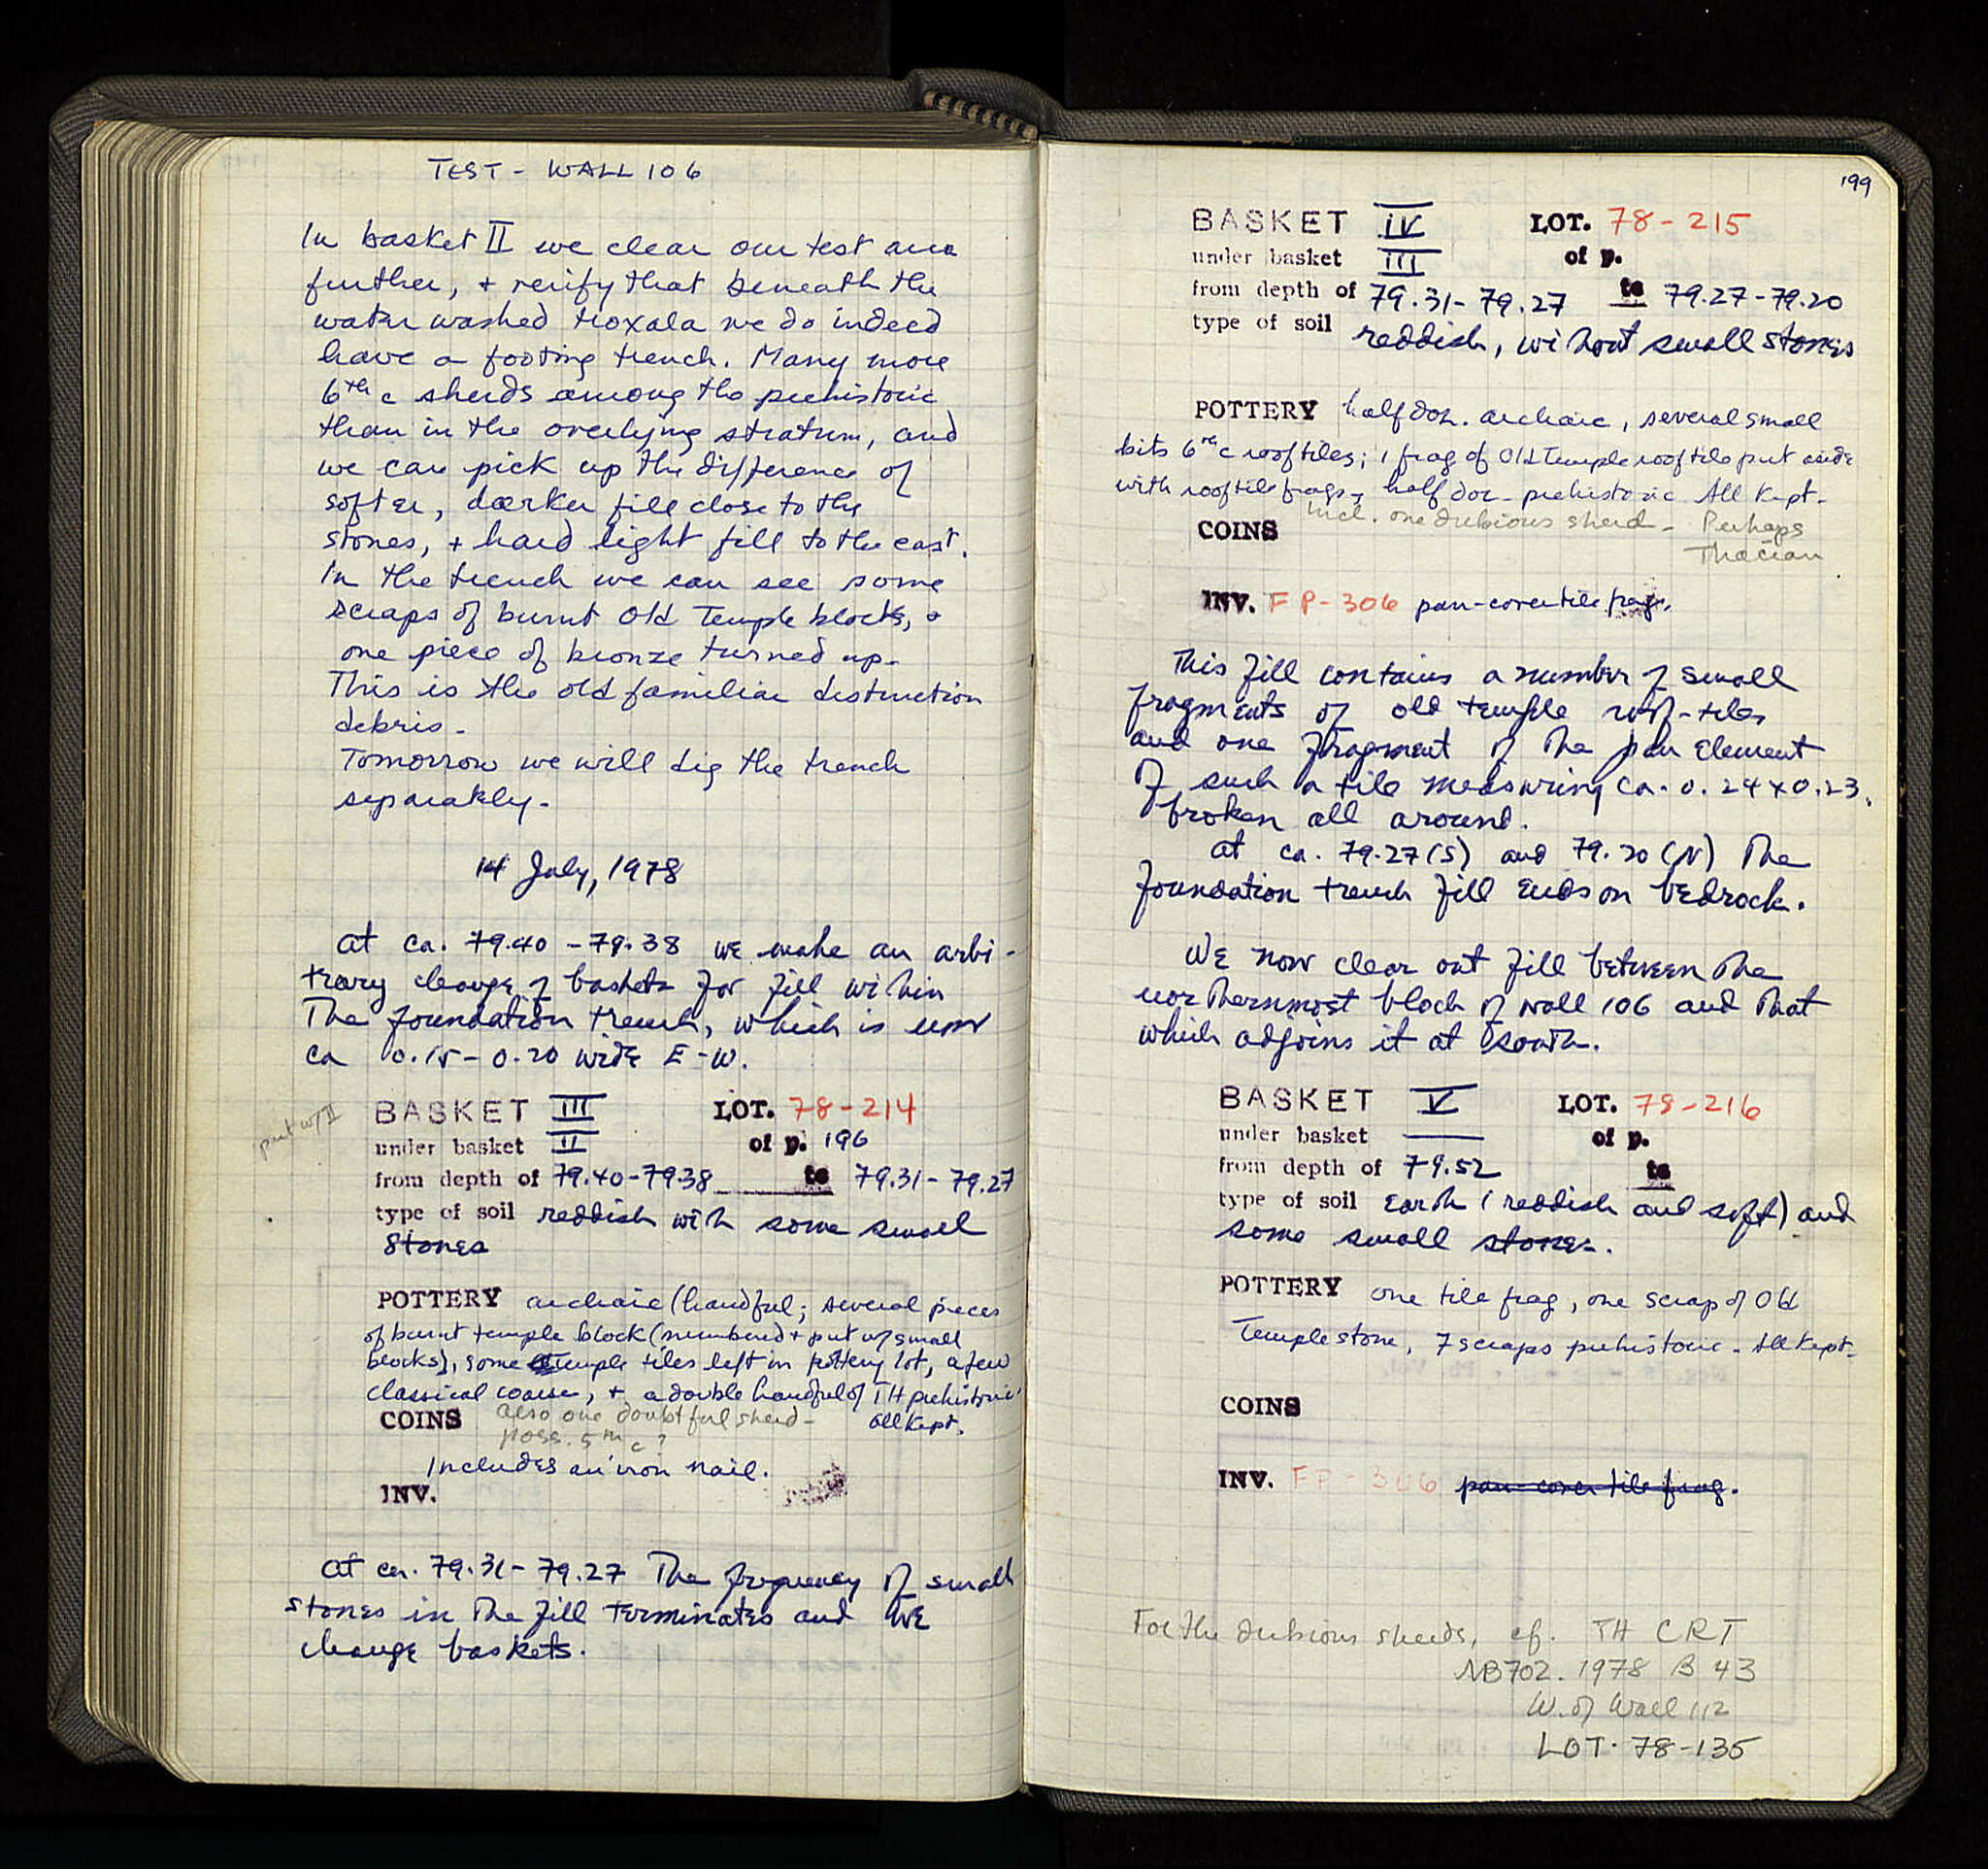 TEST - WALL 106
In basket II we clear our test area
further, + verify that beneath the
water washed
we do indeed
have a footing trench. Many more
6th c sherds among the prehistoric
than in the overlying stratum, and
we can pick up the difference of
softer, darker fill close to the
stones, + hard light fill to the east.
In the trench we can see some
scraps of burnt Old Temple blocks, +
one piece of bronze turned up.
This is the old familiar destruction
debris.
Tomorrow we will dig the trench
separately.
14 July, 1978
at ca. 79.40 - 79.38 we make an arbi-
trary change of baskets for fill within
The foundation trench, which is now
ca 0.15 - 0.20 wide E-W.
put w/ II
BASKET III LOT. 78-214
under basket II of p. 196
from depth of 79.40-79.38 to 79.31-79.27
type of soil reddish with some small
stones
POTTERY archaic (handful; several pieces
of burnt temple block (numbered + put w/ small
blocks), some Temple tiles left in pottery lot, a few
classical coarse, + a double handful of TH prehistoric.
COINS also one doubtful sherd - All kept.
poss. 5th c?
Includes an iron nail.
INV.
at ca. 79.31-79.27 The frequency of small
stones in the fill terminates and we
change baskets.
199
BASKET IV LOT. 78-215
under basket III of p.
from depth of 79.31-79.27 to 79.27-79.20
type of soil reddish, without small stones
POTTERY half doz. archaic, several small
bits 6th c rooftiles; 1 frag of Old Temple rooftile put aside
with rooftile frags, half doz. prehistoric All kept.
COINS incl. one dubious sherd - Perhaps
Thracian
INV. FP-306 pan-cover tile frag.
This fill contains a number of small
fragments of old temple roof-tiles
and one fragment of the pan element
of such a tile measuring ca. 0.24 x 0.23,
broken all around.
at ca. 79.27(S) and 79.20(N) The
foundation trench fill ends on bedrock.
We now clear out fill between the
northernmost block of wall 106 and that
which adjoins it at south.
BASKET V LOT. 78-216
under basket — of p.
from depth of 79.52 to
type of soil Earth (reddish and soft) and
some small stones.
POTTERY one tile frag, one scrap of Old
Temple stone, 7 scraps prehistoric - All kept.
COINS
INV. FP-306 pan-cover tile frag.
For the dubious sherds, cf. TH CRT
NB702. 1978 B 43
W. of Wall 112
LOT. 78-135